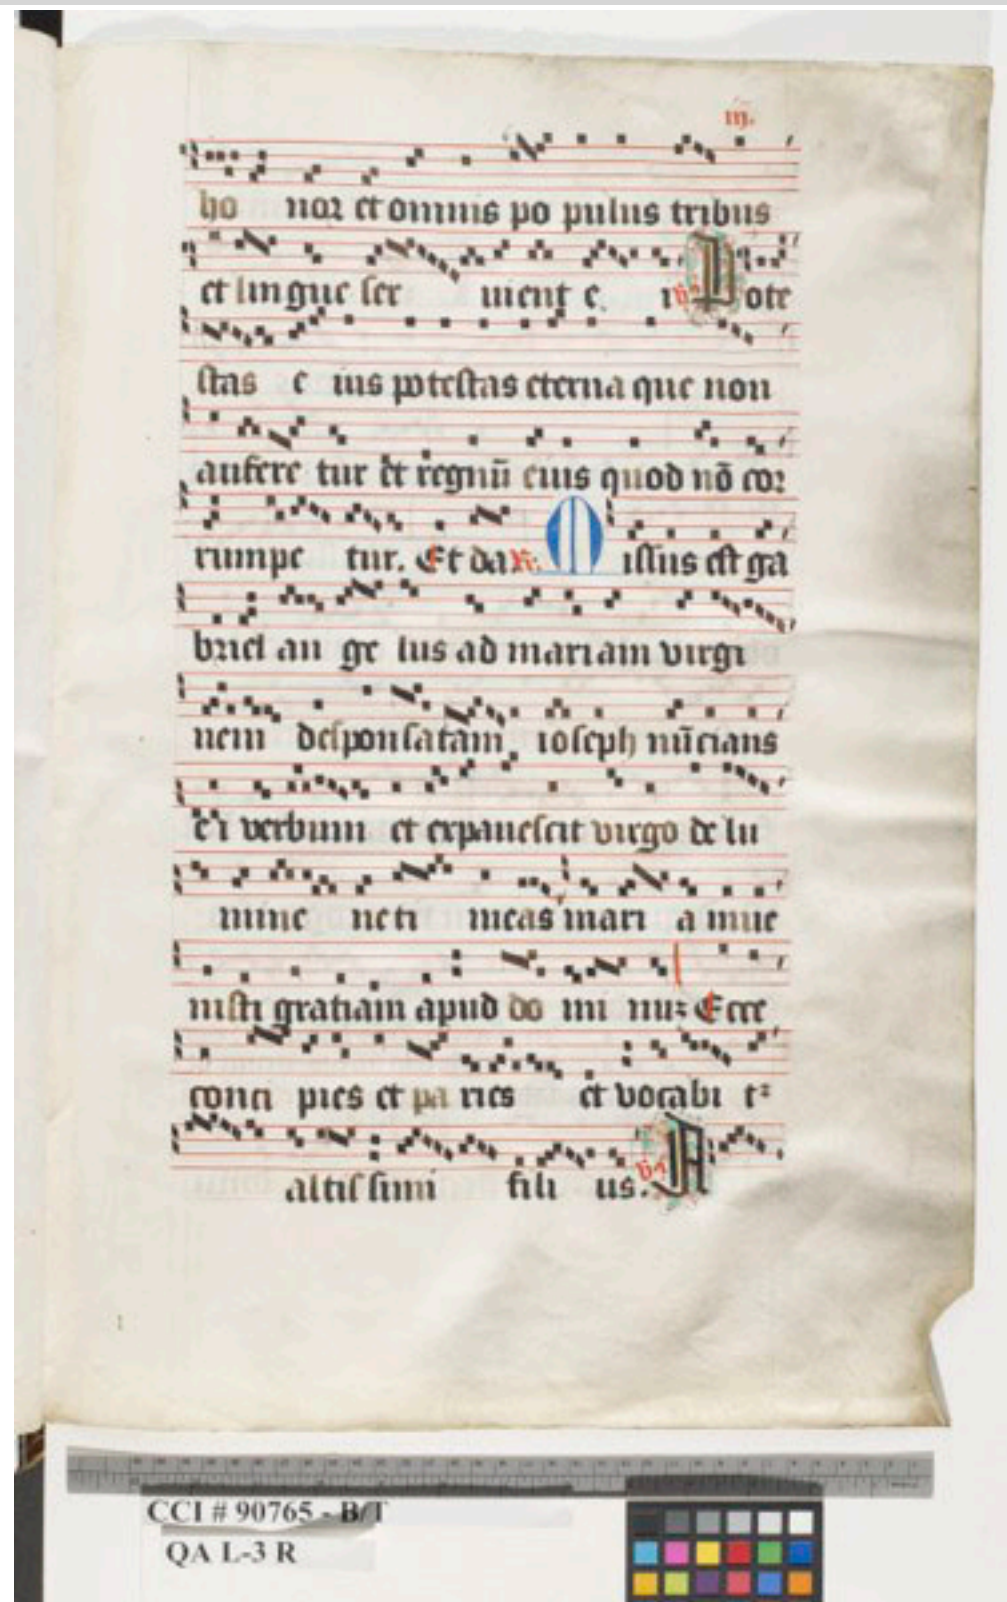 iij.
ho nor et omnis po pulus tribus
et lingue ser uient e i ℣ Pote
stas e ius potestas eterna que non
aufere tur et regnū eius quod nō cor
rumpe tur. Et da ℟. Missus est ga
briel an ge lus ad mariam virgi
nem desponsatam ioseph nūcians
e i verbum et expauescit virgo de lu
mine ne ti meas mari a inue
nisti gratiam apud do mi nuz Ecce
conci pies et pa ries et vocabi tᷣ
altis simi fili us. ℣ A
1
CCI # 90765 - B/T
QA L-3 R